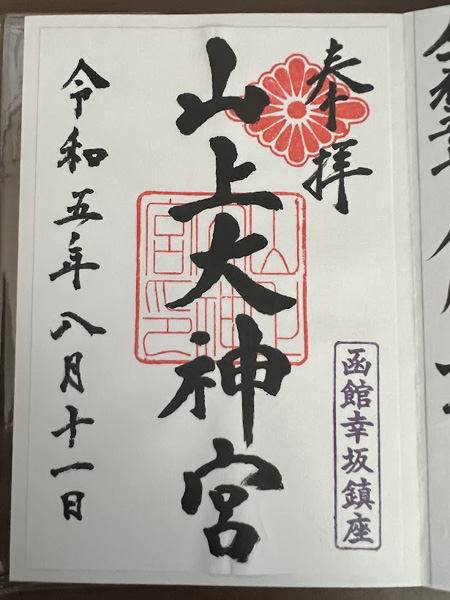 奉拝
函館幸坂鎮座
山上大神宮
令和五年八月十一日